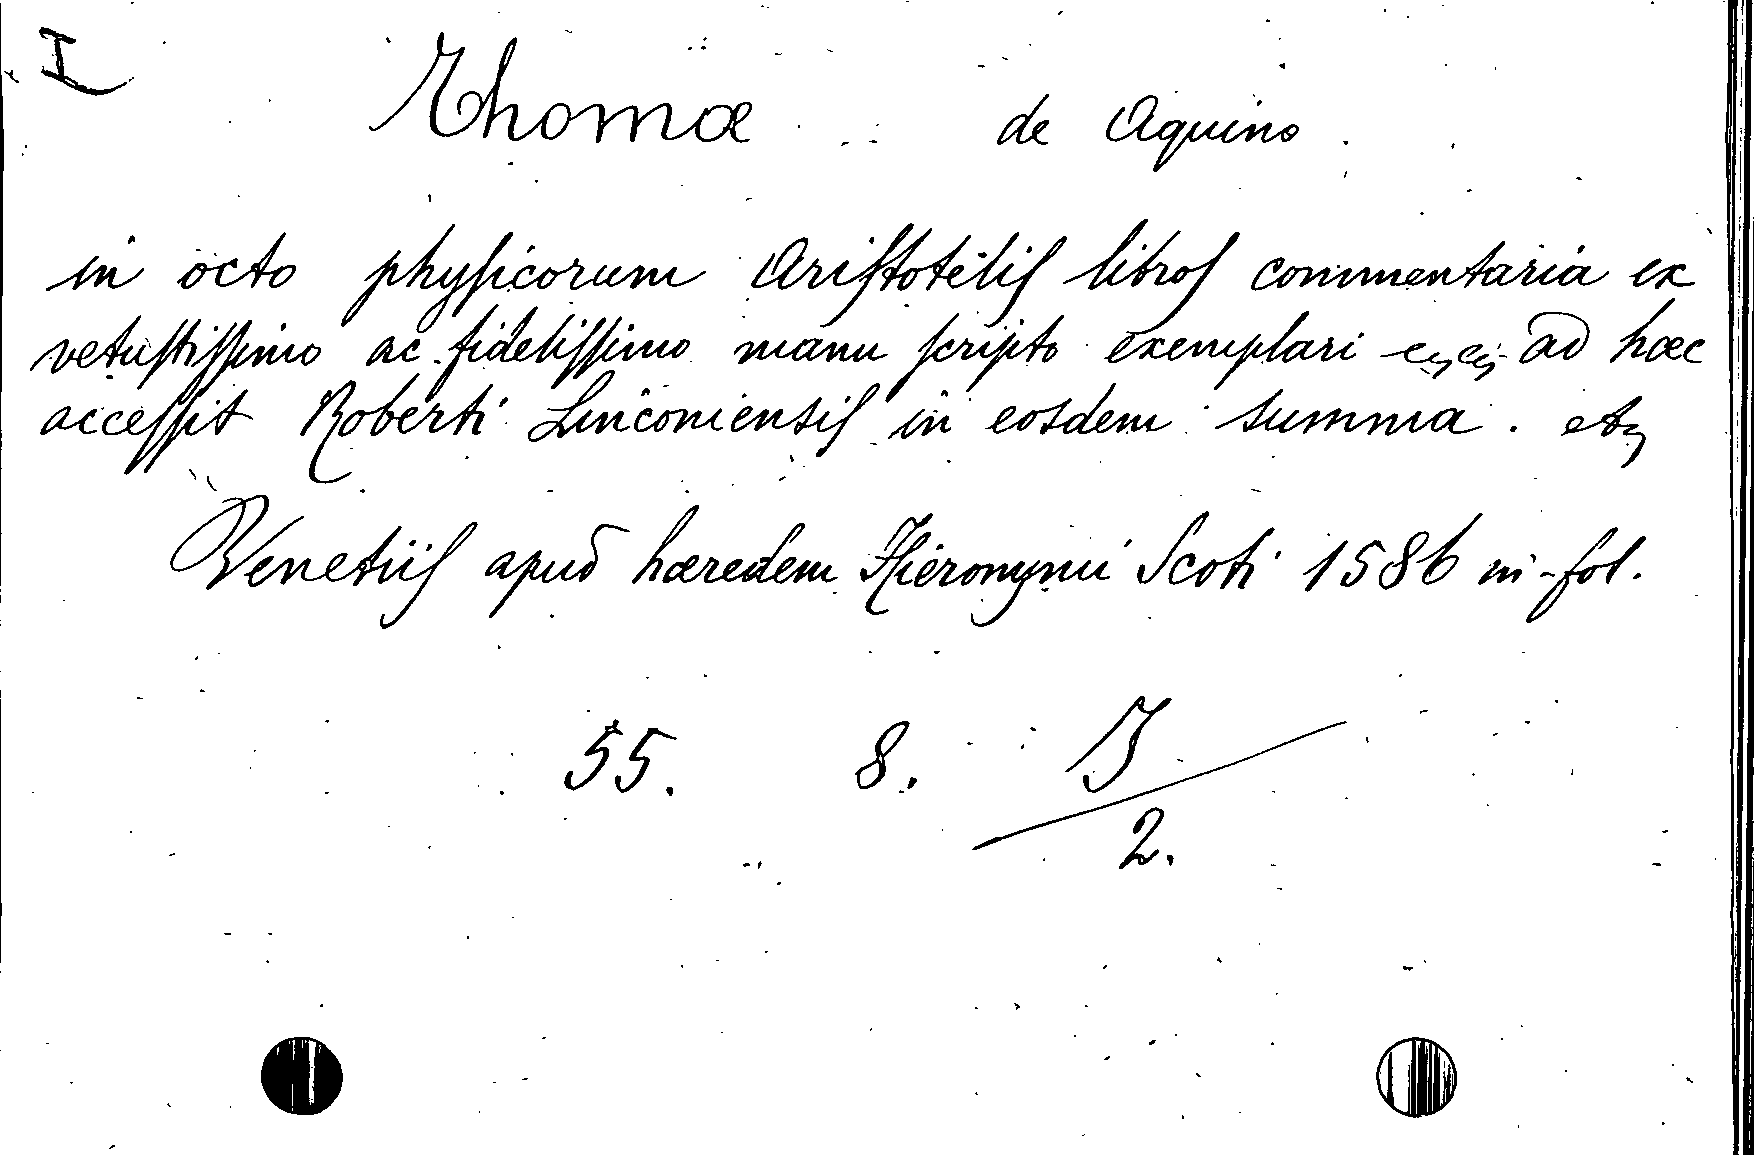 I
Thomæ de Aquino
in octo phyſicorum Ariſtoteliſ libroſ commentaria ex
vetuſtiſſimo ac fidelissimo manu ſcripto exemplari ad hæc
acceſſit Roberti Linconiensiſ in eosdem summa . etc
Venetiiſ apud hæredem Hieronymi Scoti 1586 in-fol.
55. 8. I
2.